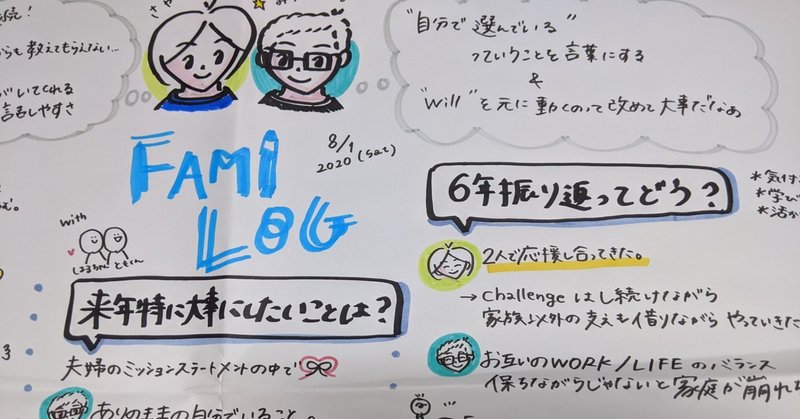 さや
らも教えてもらえない...
がいてくれる
話しやすさ
"自分で選んでいる"
っていうことを言葉にする
&
"Will"を元に動くのって改めて大事だなぁ
FAMI
LOG
8/1
2020 (sat)
with
はるちゃん ともくん
来年特に大事にしたいことは?
夫婦のミッションステートメントの中で
ありのままの自分でいること。
6年振り返ってどう?
*気付
*学び
*活か
2人で応援し合ってきた。
→ Challengeはし続けながら
家族以外の支えも借りながら やっていきた
お互いのWORK/LIFEのバランス
保ちながらじゃないと家庭が崩れ